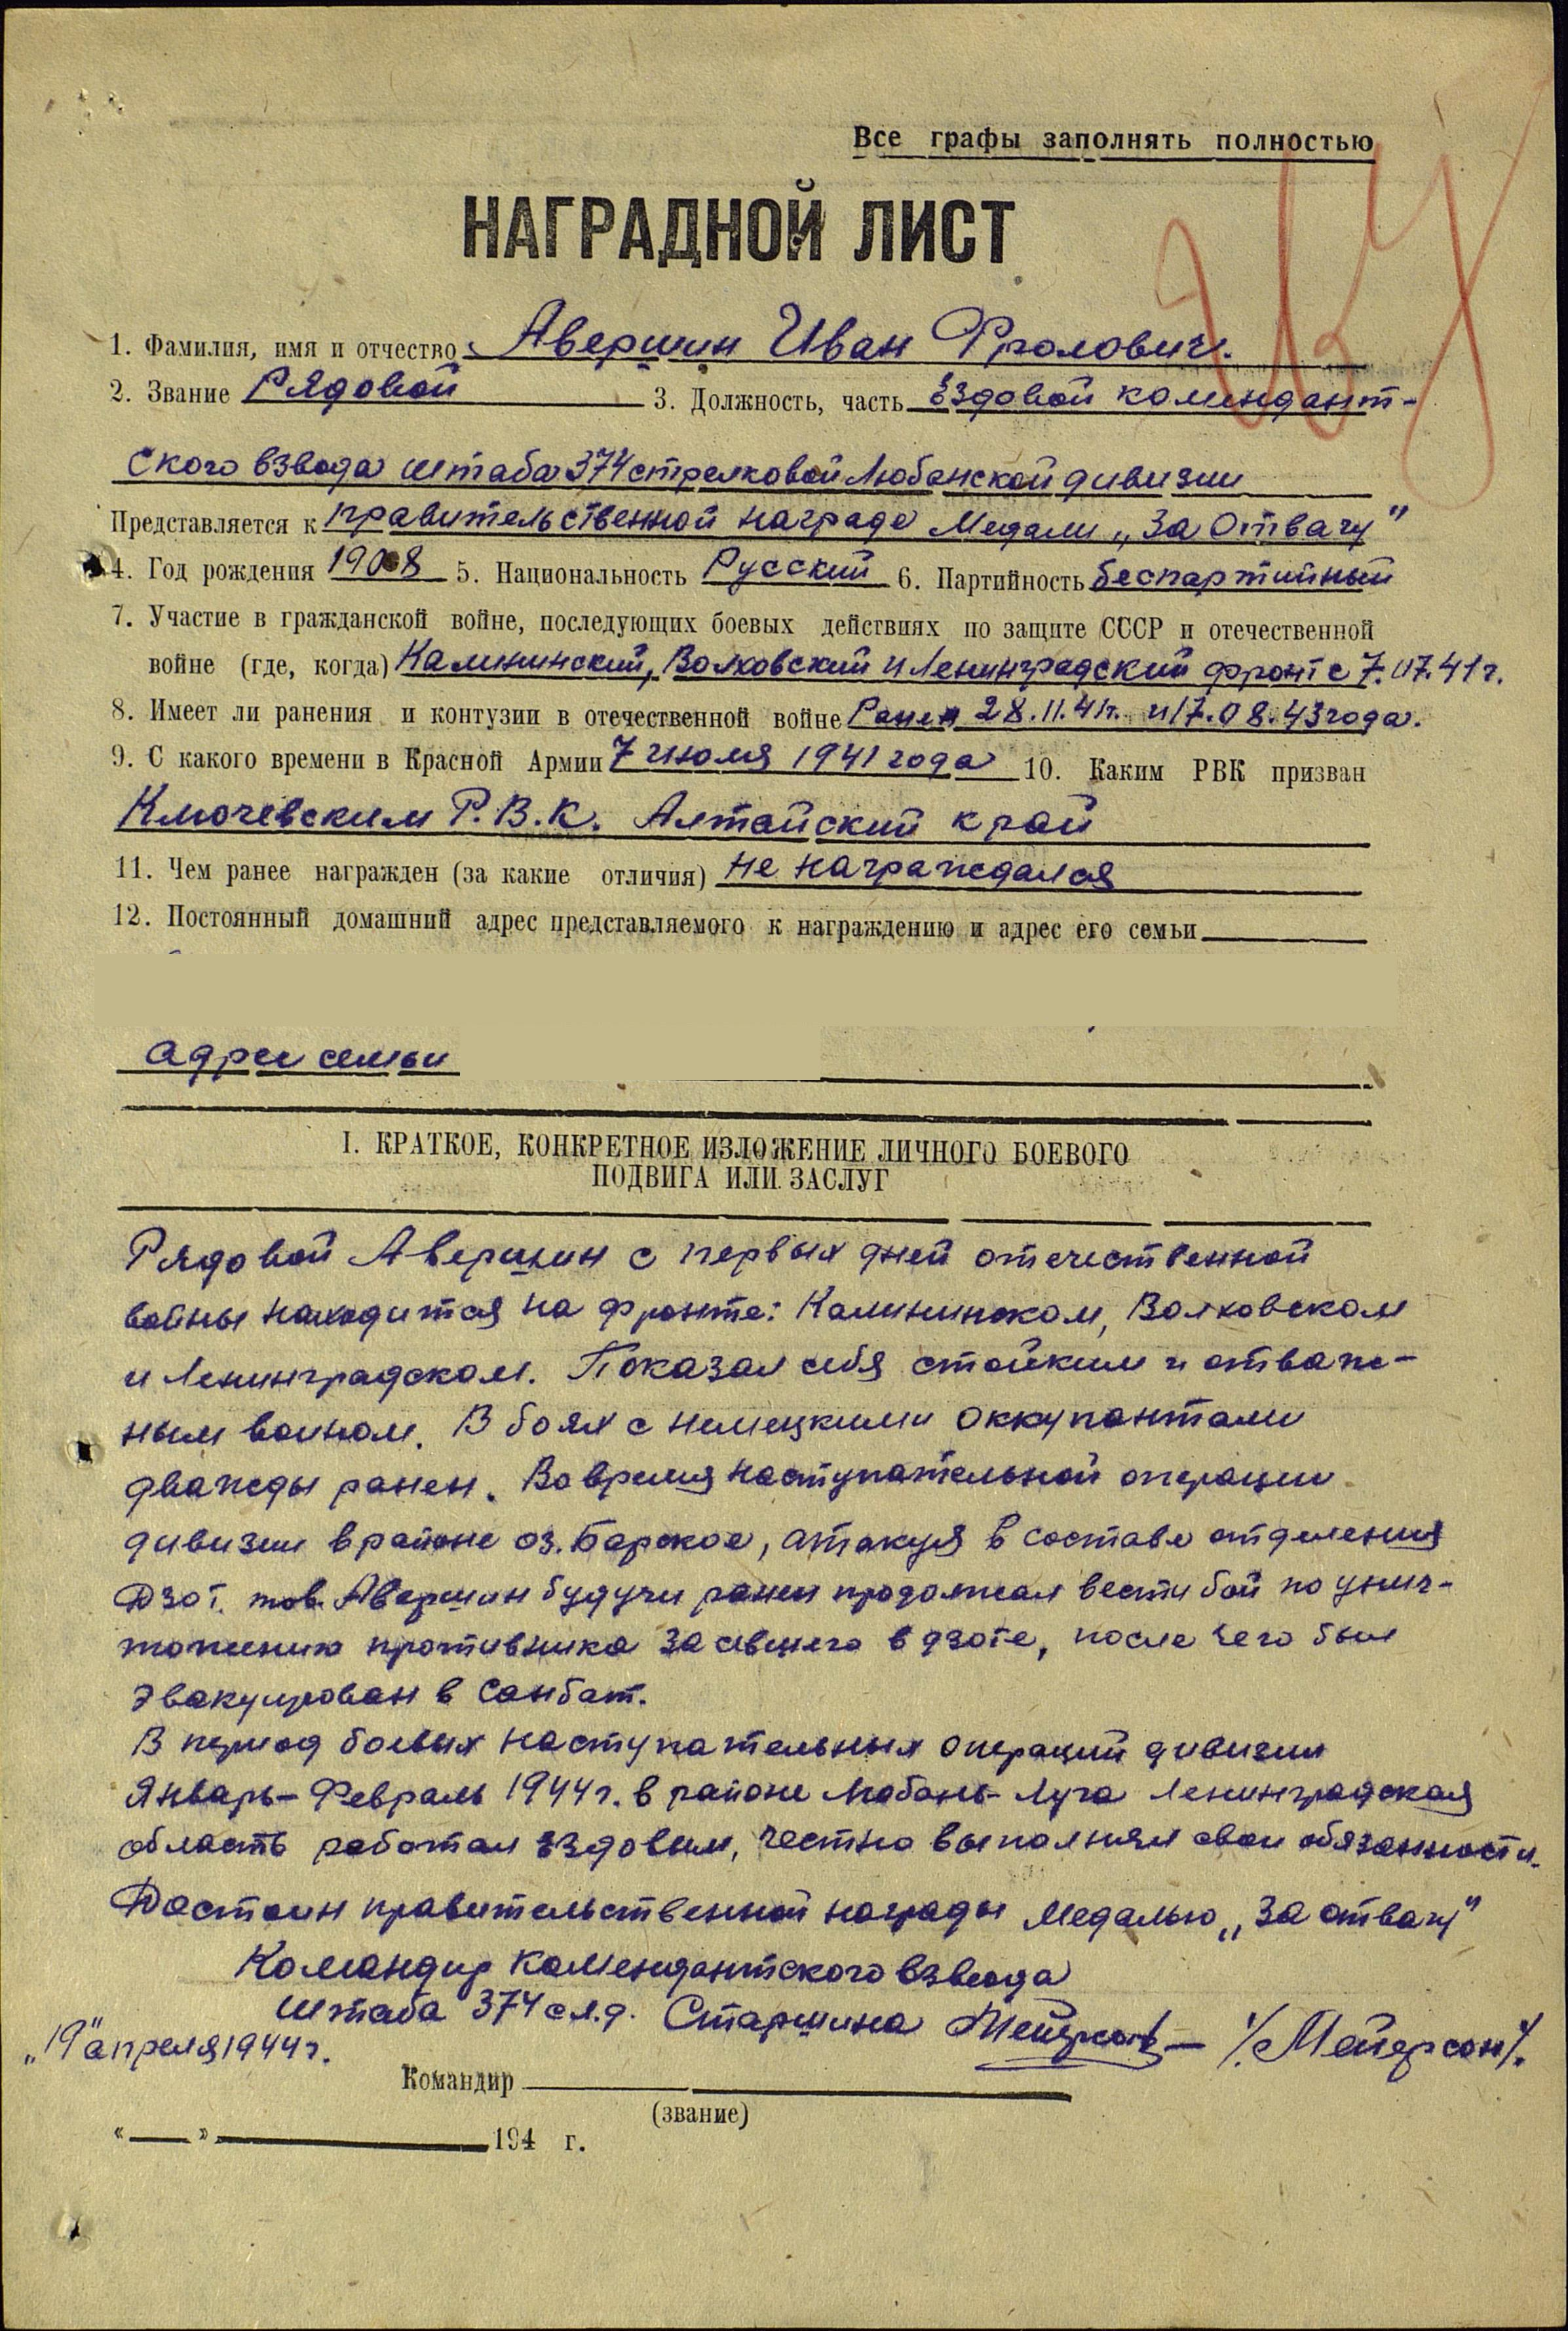 Все графы заполнять полностью
НАГРАДНОЙ ЛИСТ
1. Фамилия, имя и отчество Авершин Иван Фролович.
2. Звание Рядовой 3. Должность, часть Ездовой комендант-
ского взвода штаба 374 стрелковой Любанской дивизии
Представляется к правительственной награде Медали „За Отвагу"
4. Год рождения 1908 5. Национальность Русский 6. Партийность беспартийный
7. Участие в гражданской войне, последующих боевых действиях по защите СССР и отечественной
войне (где, когда) Калининский, Волховский и Ленинградский фронт с 7.07.41г.
8. Имеет ли ранения и контузии в отечественной войне Ранен 28.11.41г. и 17.08.43 года.
9. С какого времени в Красной Армии 7 июля 1941 года 10. Каким РВК призван
Ключевским Р.В.К. Алтайский край
11. Чем ранее награжден (за какие отличия) не награждался
12. Постоянный домашний адрес представляемого к награждению и адрес его семьи
адрес семьи
I. КРАТКОЕ, КОНКРЕТНОЕ ИЗЛОЖЕНИЕ ЛИЧНОГО БОЕВОГО
ПОДВИГА ИЛИ ЗАСЛУГ
Рядовой Авершин с первых дней отечественной
войны находится на фронте: Калининском, Волховском
и Ленинградском. Показал себя стойким и отваж-
ным воином. В боях с немецкими оккупантами
дважды ранен. Во время наступательной операции
дивизии в районе оз. Барское, атакуя в составе отделения
Дзот. тов. Авершин будучи ранен продолжал вести бой по унич-
тожению противника засевшего в дзоте, после чего был
эвакуирован в Санбат.
В период боевых наступательных операций дивизии
Январь-Февраль 1944г. в районе Любань-Луга Ленинградская
область работал ездовым, честно выполнял свои обязанности.
Достоин правительственной награды Медалью „За отвагу"
Командир комендантского взвода
штаба 374 с.л.д. Старшина /Мейерсон/.
„19" апреля 1944г.
Командир
(звание)
« » 194 г.